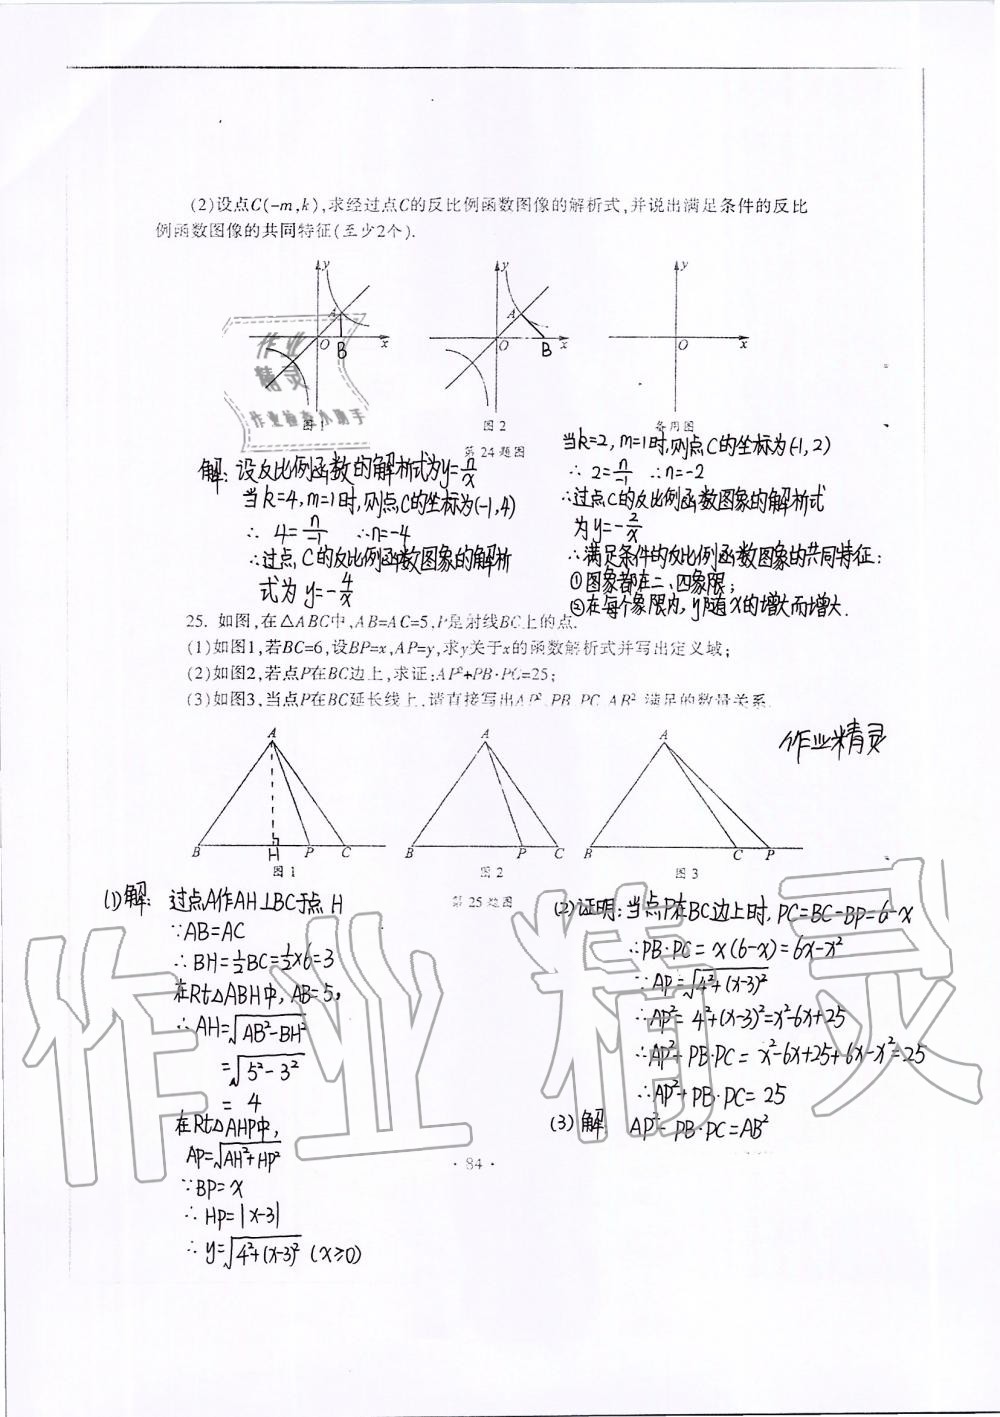 (2)设点C(-m,k),求经过点C的反比例函数图像的解析式,并说出满足条件的反比
例函数图像的共同特征(至少2个).
y
A
O
B
x
图1
y
A
O
B
x
图2
y
O
x
备用图
第24题图
作业
精灵
作业检查小助手
解:设反比例函数的解析式为y=n/x
当k=4,m=1时,则点C的坐标为(-1,4)
∴ 4=n/-1 ∴n=-4
∴过点C的反比例函数图象的解析
式为 y=-4/x
当k=2,m=1时,则点C的坐标为(-1,2)
∴ 2=n/-1 ∴n=-2
∴过点C的反比例函数图象的解析式
为y=-2/x
∴满足条件的反比例函数图象的共同特征:
①图象都在二、四象限;
②在每个象限内,y随x的增大而增大.
25. 如图,在△ABC中,AB=AC=5,P是射线BC上的点.
(1)如图1,若BC=6,设BP=x,AP=y,求y关于x的函数解析式并写出定义域;
(2)如图2,若点P在BC边上,求证:AP²+PB·PC=25;
(3)如图3,当点P在BC延长线上,请直接写出AP²,PB,PC,AB²满足的数量关系.
作业精灵
A
B
H
P
C
图1
A
B
P
C
图2
A
B
C
P
图3
第25题图
(1)解: 过点A作AH⊥BC于点H
∵AB=AC
∴BH=½BC=½×6=3
在Rt△ABH中,AB=5,
∴AH=√AB²-BH²
=√5²-3²
= 4
在Rt△AHP中,
AP=√AH²+HP²
∵BP=x
∴HP=|x-3|
∴y=√4²+(x-3)² (x≥0)
(2)证明:当点P在BC边上时,PC=BC-BP=6-x
∴PB·PC=x(6-x)=6x-x²
∵AP=√4²+(x-3)²
∴AP²=4²+(x-3)²=x²-6x+25
∴AP²+PB·PC=x²-6x+25+6x-x²=25
∴AP²+PB·PC=25
(3)解 AP²-PB·PC=AB²
·84·
作业精灵